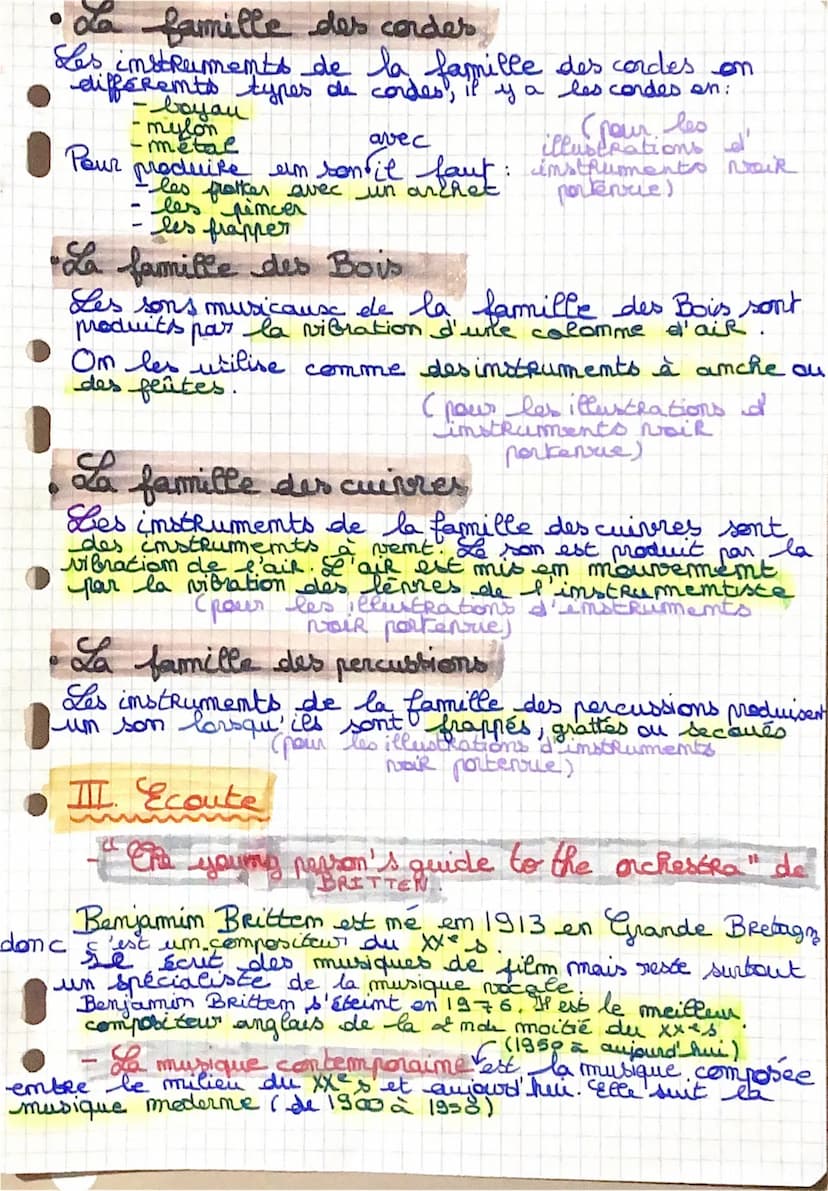 • La famille des cordes
Les instruments de la famille des cordes on
différents types de cordes, il y a les cordes en :
- boyau
- nylon
- métal
(pour les
illustrations d'
instruments voir
portenvue)
avec
Pour produire un son il faut :
- les frotter avec un archet
- les pincer
- les frapper
• La famille des Bois
Les sons musicaux de la famille des Bois sont
produits par la vibration d'une colonne d'air.
On les utilise comme des instruments à anche ou
des flûtes.
(pour les illustrations d'
instruments voir
portenvue)
• La famille des cuivres
Les instruments de la famille des cuivres sont
des instruments à vent. Le son est produit par la
vibration de l'air. L'air est mis en mouvement
par la vibration des lèvres de l'instrumentiste
(pour les illustrations d'instruments
voir portenvue)
• La famille des percussions
Les instruments de la famille des percussions produisent
un son lorsqu'ils sont frappés, grattés ou secoués
(pour les illustrations d'instruments
voir portenvue)
III. Ecoute
- "The young person's guide to the orchestra" de
BRITTEN.
Benjamin Britten est né en 1913 en Grande Bretagn
donc c'est un compositeur du XXe s.
Il écrit des musiques de film mais reste surtout
un spécialiste de la musique vocale.
Benjamin Britten s'éteint en 1976. Il est le meilleur
compositeur anglais de la 2nde moitié du XXe s
(1950 à aujourd'hui)
- La musique contemporaine est la musique composée
entre le milieu du XXe s et aujourd'hui. Elle suit la
musique moderne (de 1900 à 1950)